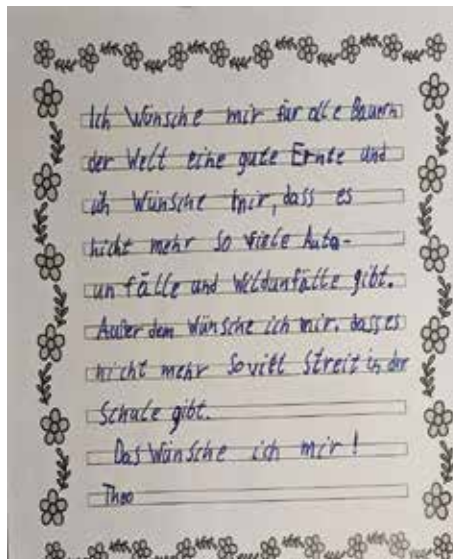 Ich Wünsche mir für alle Bauern
der Welt eine gute Ernte und
ich Wünsche mir, dass es
nicht mehr so viele Auto-
unfälle und Wildunfälle gibt.
Außer dem Wünsche ich mir. dass es
nicht mehr soviel Streit in der
Schule gibt.
Das Wünsche ich mir!
Theo